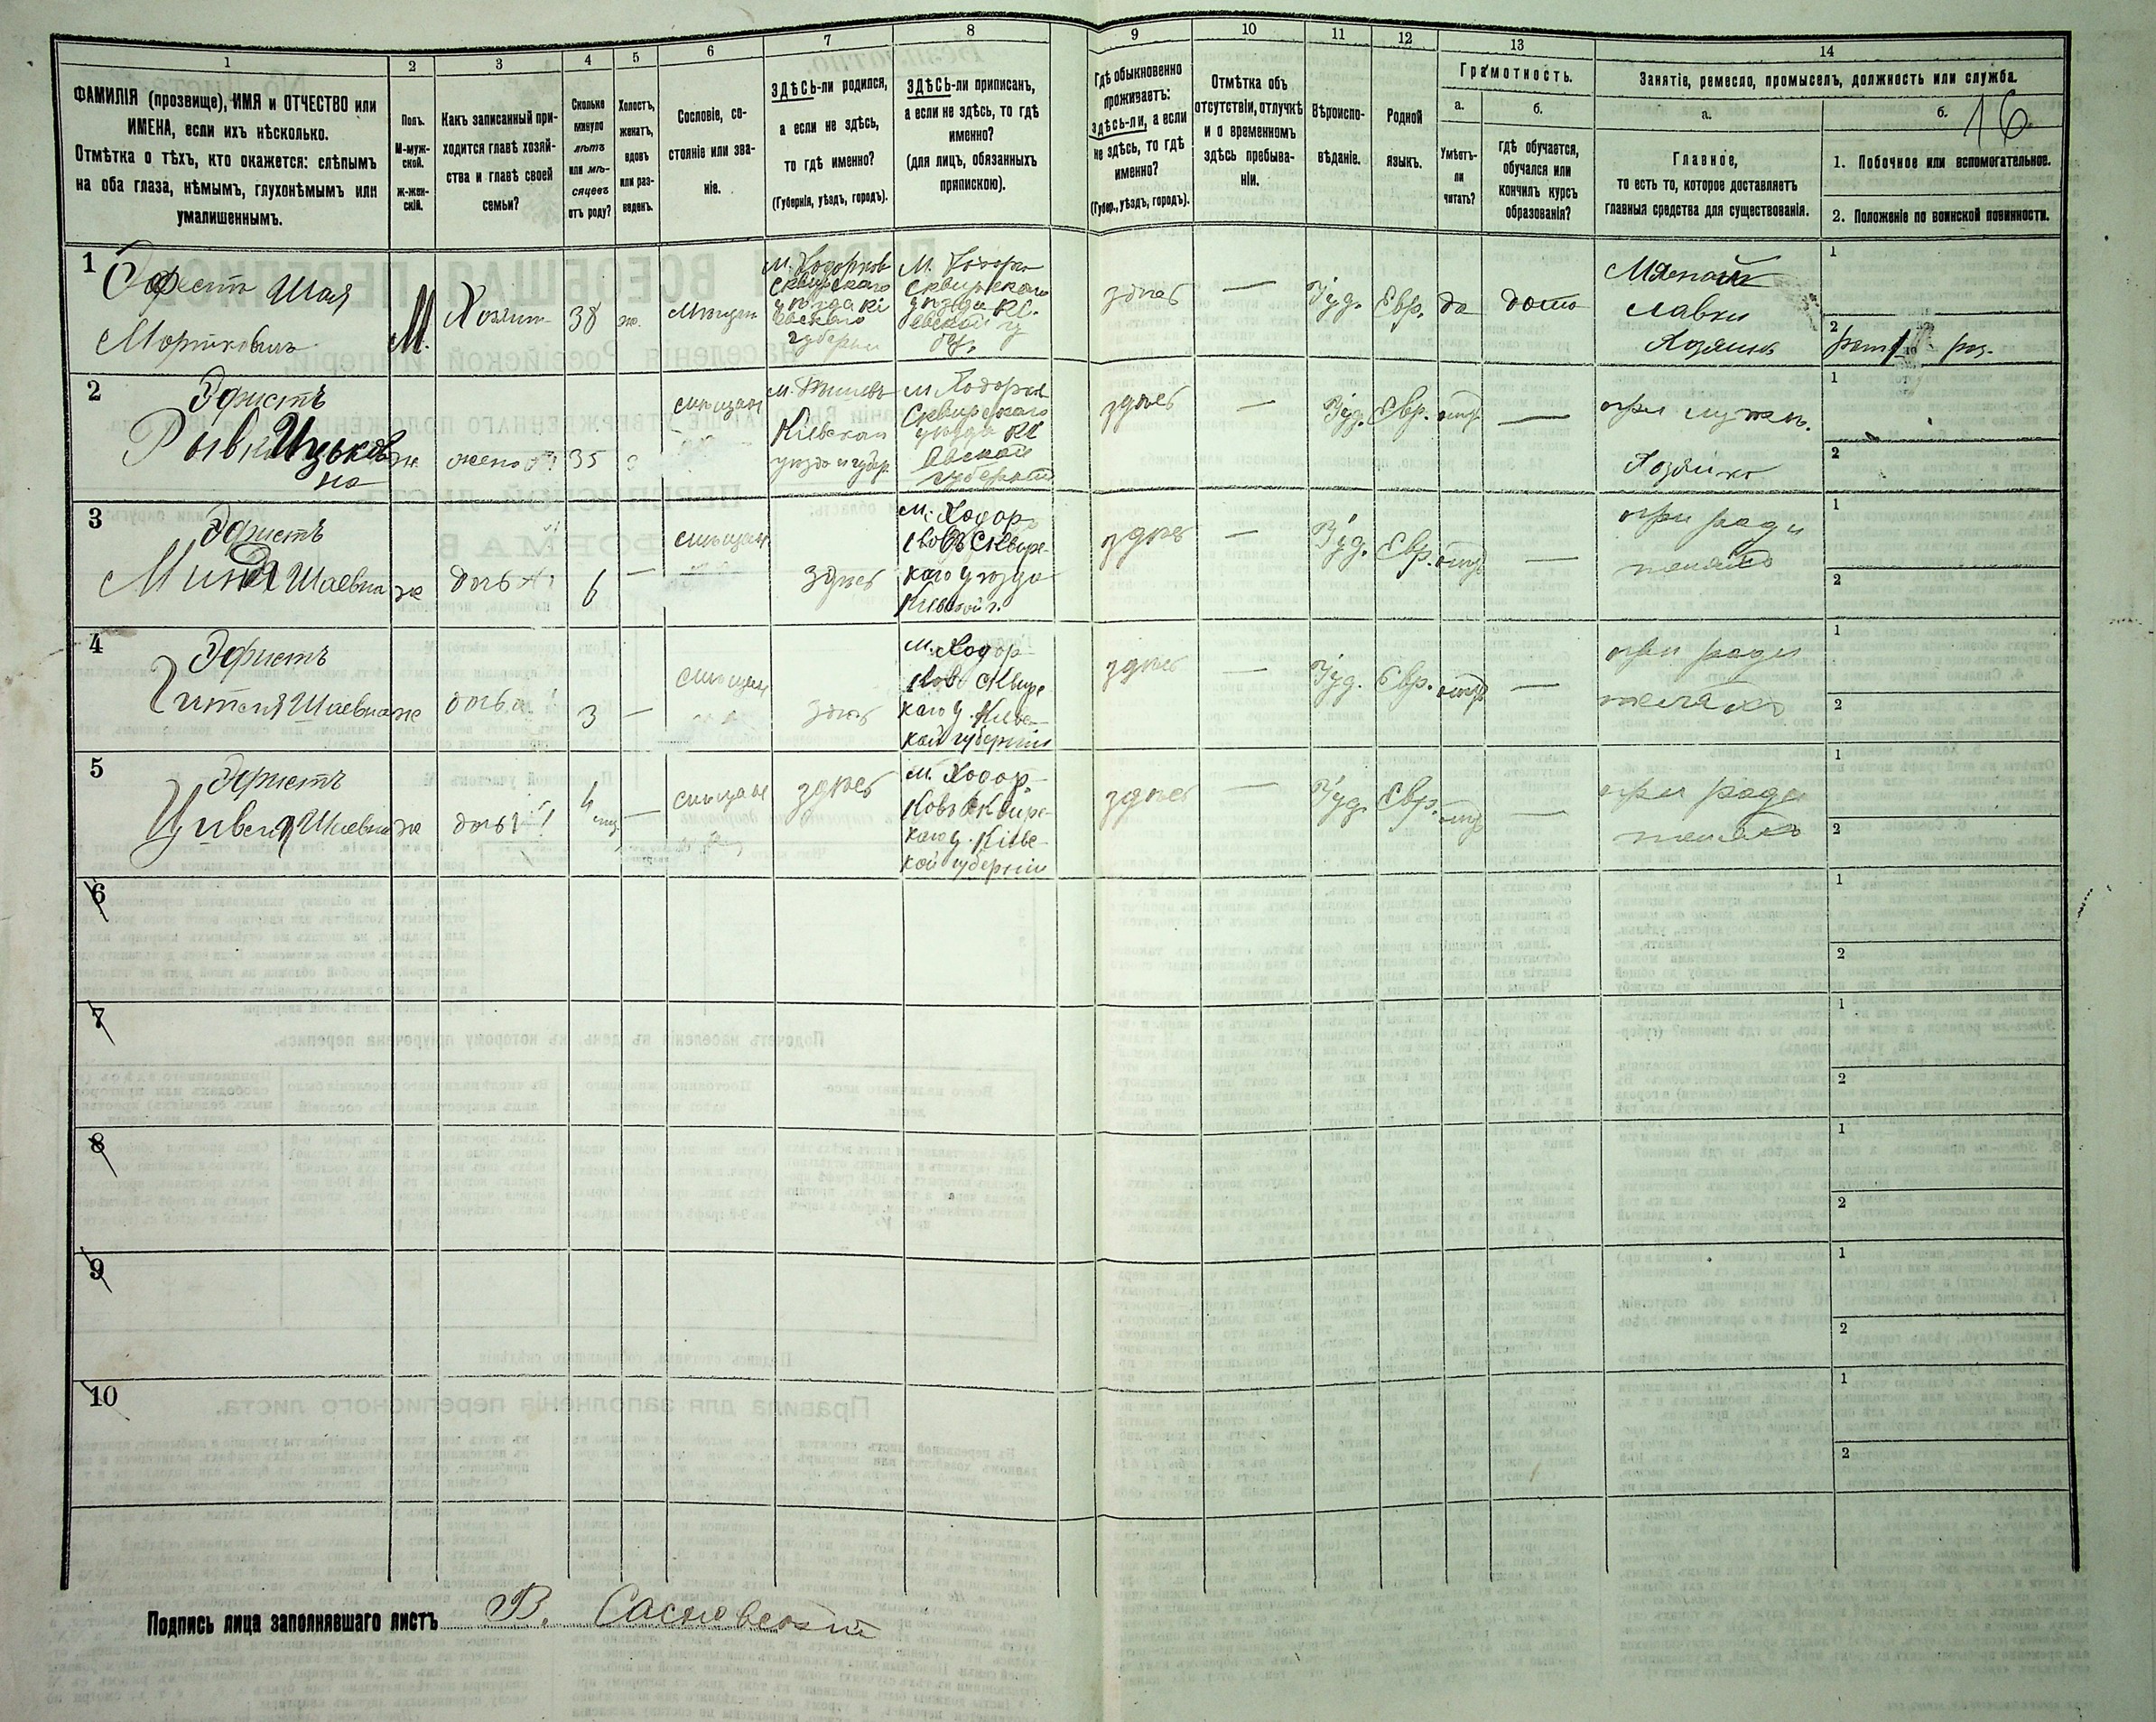 1
2
3
4
5
6
7
8
9
10
11
12
13
14
ФАМИЛІЯ (прозвище), ИМЯ и ОТЧЕСТВО или
ИМЕНА, если ихъ нѣсколько.
Отмѣтка о тѣхъ, кто окажется: слѣпымъ
на оба глаза, нѣмымъ, глухонѣмымъ или
умалишеннымъ.
Полъ.
М-муж-
ской.
Ж-жен-
скій.
Какъ записанный при-
ходится главѣ хозяй-
ства и главѣ своей
семьи?
Сколько
минуло
лѣтъ
или мѣ-
сяцевъ
отъ роду?
Холостъ,
женатъ,
вдовъ
или раз-
веденъ.
Сословіе, со-
стояніе или зва-
ніе.
ЗДѢСЬ-ли родился,
а если не здѣсь,
то гдѣ именно?
(Губернія, уѣздъ, городъ).
ЗДѢСЬ-ли приписанъ,
а если не здѣсь, то гдѣ
именно?
(для лицъ, обязанныхъ
припискою).
Гдѣ обыкновенно
проживаетъ:
здѣсь-ли, а если
не здѣсь, то гдѣ
именно?
(Губер., уѣздъ, городъ).
Отмѣтка объ
отсутствіи, отлучкѣ
и о временномъ
здѣсь пребыва-
ніи.
Вѣроиспо-
вѣданіе.
Родной
языкъ.
Грамотность.
а.
Умѣетъ-
ли
читать?
б.
гдѣ обучается,
обучался или
кончилъ курсъ
образованія?
Занятіе, ремесло, промыселъ, должность или служба.
а.
Главное,
то есть то, которое доставляетъ
главныя средства для существованія.
б.
16
1. Побочное или вспомогательное.
2. Положеніе по воинской повинности.
1
Шая
М.
38
М. Ходорков
Сквирскаго
уѣзда Кі
евской
губерніи
М. Ходорк
Сквирскаго
уѣзда Кі-
евской гу
бер.
здѣсь
—
Іуд.
Евр.
да
дома
Мясной
лавки
Хозяинъ
1
2
2
Эфистъ
Рывка Ицьков
на
ж
жена
35
Кіевскаго
уѣзда и губер.
м. Ходорк
Сквирскаго
уѣзда Кі
евской
губерніи
здѣсь
—
Іуд.
Евр.
—
при мужѣ
Хозяинѣ
1
2
3
Эфистъ
Миндя Шаевна
ж
дочь
6
—
здѣсь
м. Ходор-
ковъ Сквирс-
каго уѣзда
Кіевской г.
здѣсь
—
Іуд.
Евр.
—
при роди
теляхъ
1
2
4
Эфистъ
Гителя Шаевна
ж
дочь
3
—
здѣсь
м. Ходор-
ковъ Сквирс-
каго у. Кіевс-
кой губерніи
здѣсь
—
Іуд.
Евр.
—
при роди
теляхъ
1
2
5
Эфистъ
Цивеля Шаевна
ж
дочь
4
мѣс.
—
здѣсь
м. Ходор-
ковъ Сквирс-
каго у. Кіевс-
кой губерніи
здѣсь
—
Іуд.
Евр.
—
при роди
теляхъ
1
2
6
1
2
7
1
2
8
1
2
9
1
2
10
1
2
Подпись лица заполнявшаго листъ В. Сасновскій